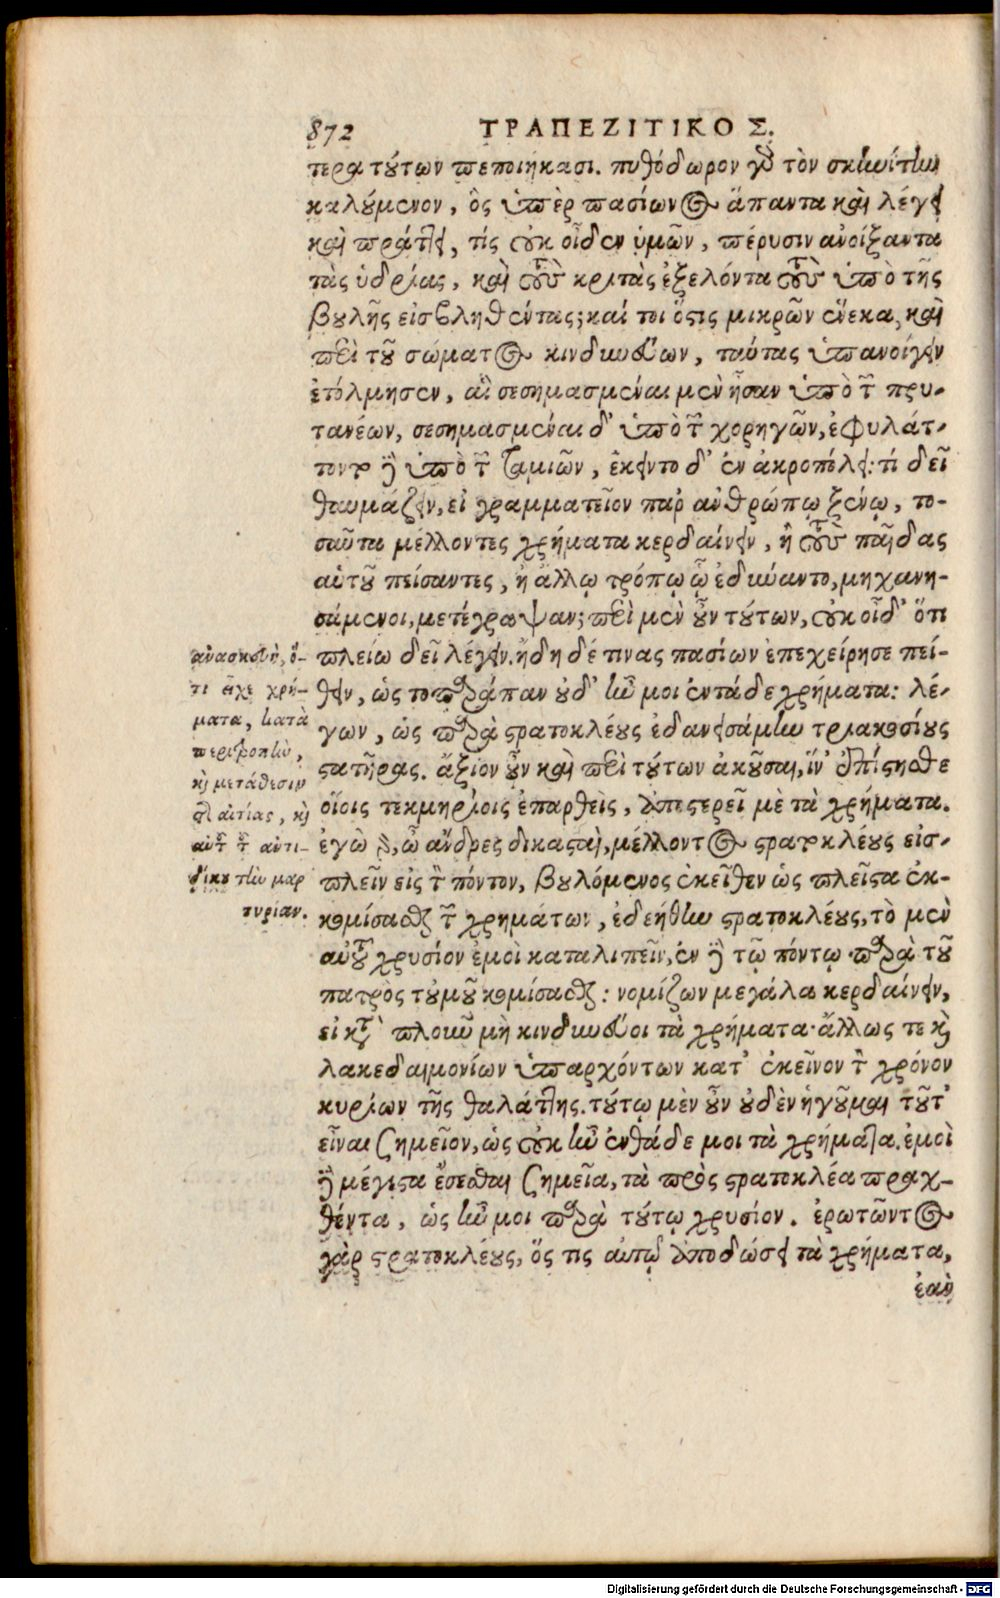 872 ΤΡΑΠΕΖΙΤΙΚΟΣ.
τερα τούτων πεποιήκασι. πυθόδωρον γὰρ τὸν σκηνίτην
καλούμενον, ὃς ὑπὲρ πασίωνος ἅπαντα καὶ λέγει
καὶ πράττει, τίς οὐκ οἶδεν ὑμῶν, πέρυσιν ἀνοίξαντα
τὰς ὑδρίας, καὶ τοὺς κριτὰς ἐξελόντα τοὺς ὑπὸ τῆς
βουλῆς εἰσβληθέντας; καί τοι ὅστις μικρῶν ἕνεκα, καὶ
περὶ τοῦ σώματος κινδυνεύων, ταύτας ὑπανοίγειν
ἐτόλμησεν, αἳ σεσημασμέναι μὲν ἦσαν ὑπὸ τῶν πρυ-
τανέων, σεσημασμέναι δ' ὑπὸ τῶν χορηγῶν, ἐφυλάτ-
τοντο δὲ ὑπὸ τῶν ταμιῶν, ἔκειντο δ' ἐν ἀκροπόλει: τί δεῖ
θαυμάζειν, εἰ γραμματεῖον παρ' ἀνθρώπῳ ξένῳ, το-
σαῦτα μέλλοντες χρήματα κερδαίνειν, ἢ τοὺς παῖδας
αὐτοῦ πείσαντες, ἢ ἄλλῳ τρόπῳ ᾧ ἐδύναντο, μηχανη-
σάμενοι, μετέγραψαν; περὶ μὲν οὖν τούτων, οὐκ οἶδ' ὅτι
πλείω δεῖ λέγειν. ἤδη δέ τινας πασίων ἐπεχείρησε πεί-
θειν, ὡς τοπαράπαν οὐδ' ἦν μοι ἐντάδε χρήματα: λέ-
γων, ὡς παρὰ στρατοκλέους ἐδανεισάμην τριακοσίους
στατῆρας. ἄξιον οὖν καὶ περὶ τούτων ἀκοῦσαι, ἵν' ἐπίστησθε
οἵοις τεκμηρίοις ἐπαρθεὶς, ἀποστερεῖ μὲ τὰ χρήματα.
ἐγὼ γὰρ, ὦ ἄνδρες δικασταὶ, μέλλοντος στρατοκλέους εἰσ-
πλεῖν εἰς τὸν πόντον, βουλόμενος ἐκεῖθεν ὡς πλεῖστα ἐκ-
κομίσασθαι τῶν χρημάτων, ἐδεήθην στρατοκλέους, τὸ μὲν
αὑτοῦ χρυσίον ἐμοὶ καταλιπεῖν, ἐν δὲ τῷ πόντῳ παρὰ τοῦ
πατρὸς τοὐμοῦ κομίσασθαι: νομίζων μεγάλα κερδαίνειν,
εἰ κατὰ πλοῦν μὴ κινδυνεύοι τὰ χρήματα· ἄλλως τε καὶ
λακεδαιμονίων ὑπαρχόντων κατ' ἐκεῖνον τὸν χρόνον
κυρίων τῆς θαλάττης. τούτῳ μὲν οὖν οὐδὲν ἡγοῦμαι τοῦτ'
εἶναι σημεῖον, ὡς οὐκ ἦν ἐνθάδε μοι τὰ χρήματα. ἐμοὶ
δὲ μέγιστα ἔσεσθαι σημεῖα, τὰ πρὸς στρατοκλέα πραχ-
θέντα, ὡς ἦν μοι παρὰ τούτῳ χρυσίον. ἐρωτῶντος
γὰρ στρατοκλέους, ὅς τις αὐτῷ ἀποδώσει τὰ χρήματα,
ἐὰν
ἀνασκευὴ, ὅ-
τι εἶχε χρή-
ματα, κατὰ
περιτροπὴν,
καὶ μετάθεσιν
τῆς αἰτίας, καὶ
αὐτοῦ τοῦ ἀντι-
δίκου τὴν μαρ
τυρίαν.
Digitalisierung gefördert durch die Deutsche Forschungsgemeinschaft - DFG